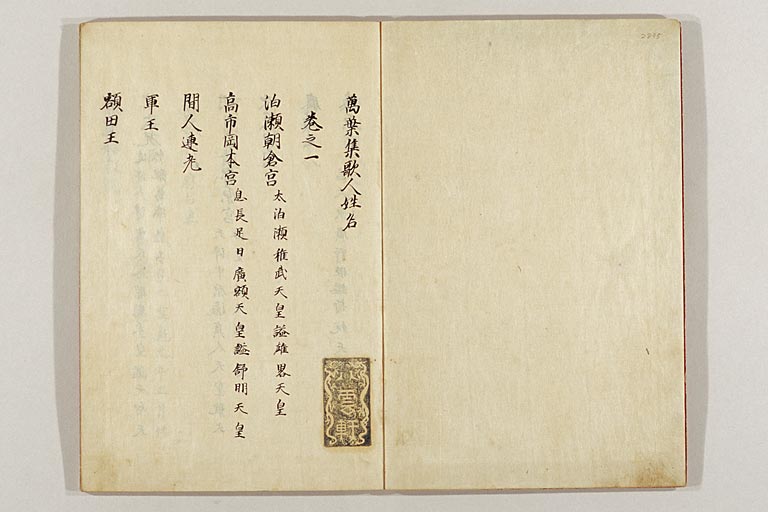 萬葉集歌人姓名
巻之一
泊瀬朝倉宮 太泊瀬稚武天皇謚雄畧天皇
高市岡本宮 息長足日廣額天皇謚舒明天皇
間人連老
軍王
額田王
雲軒
2895